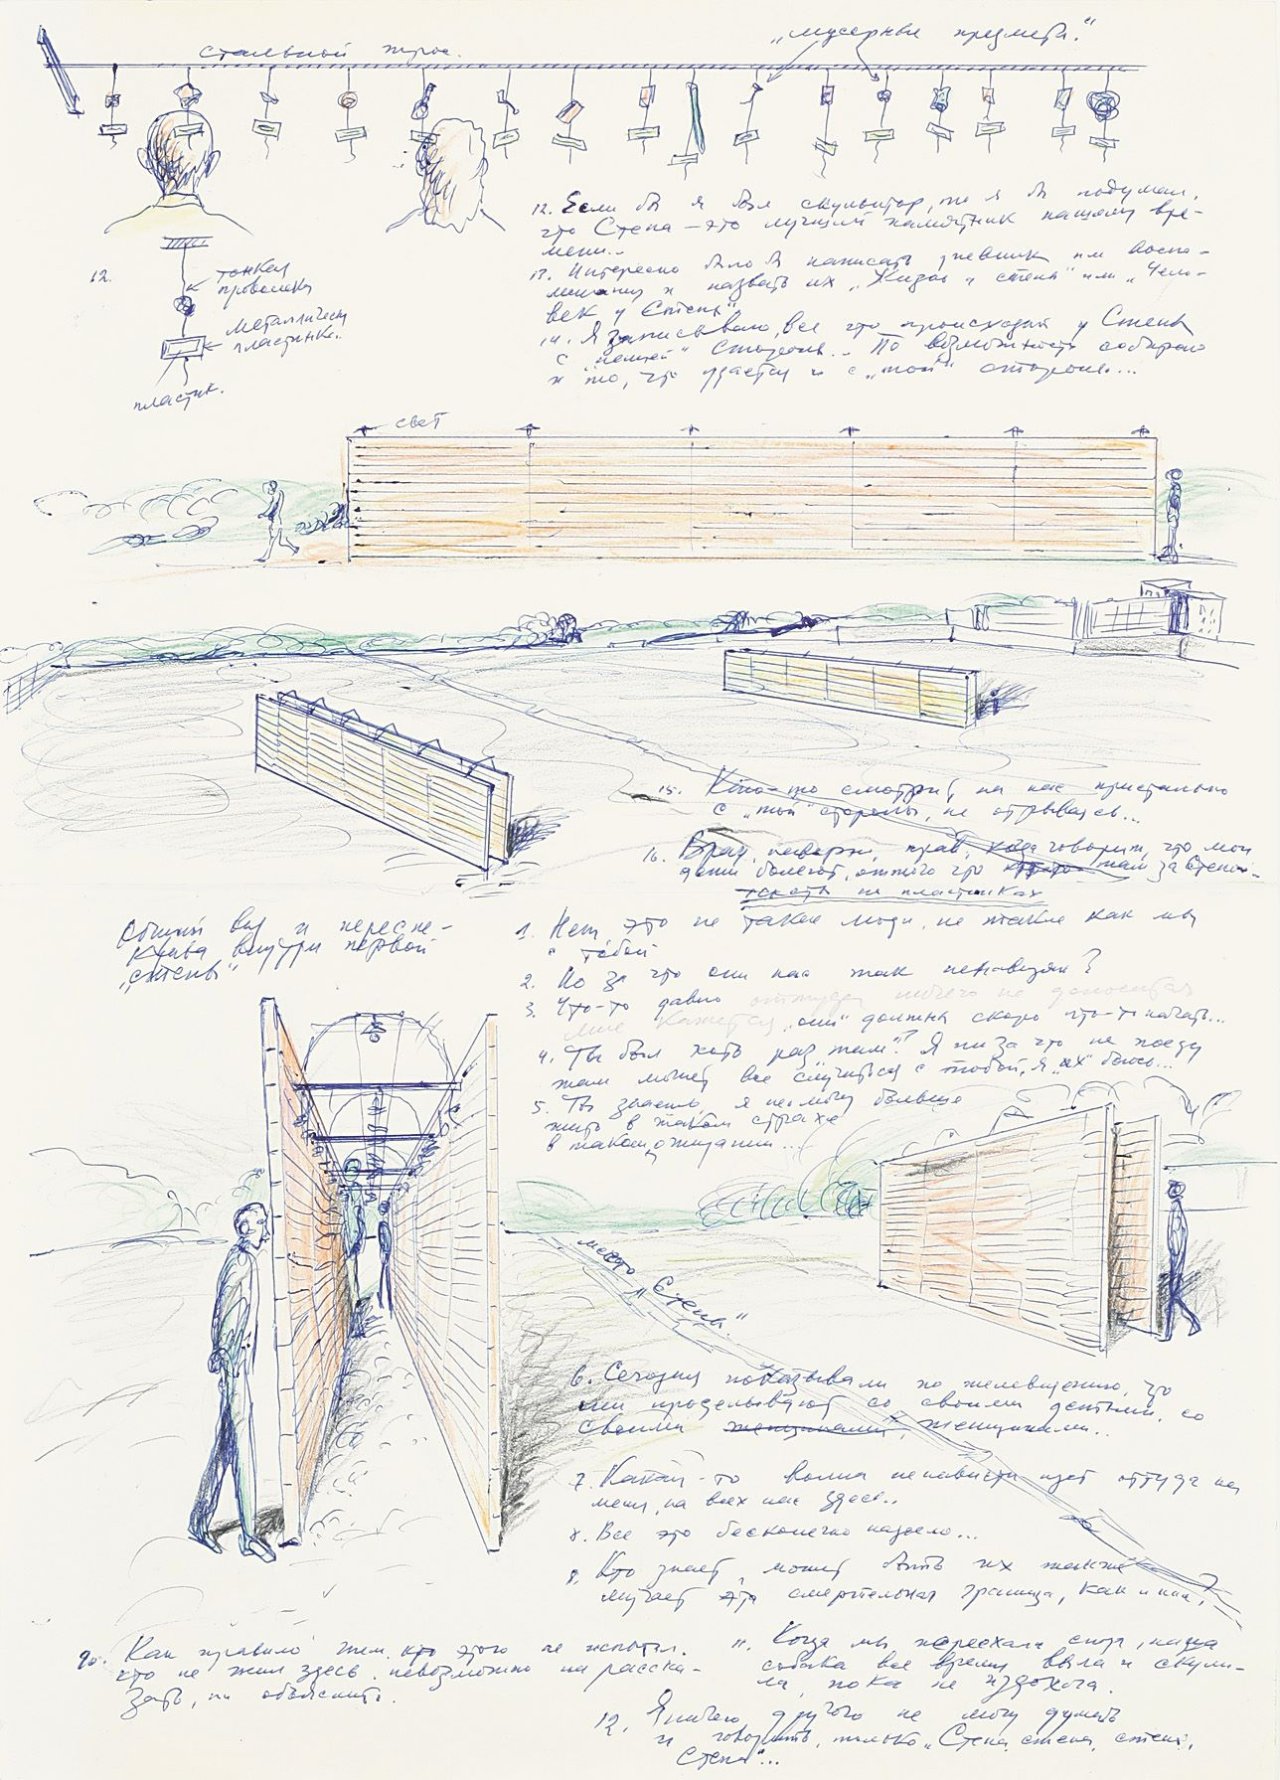 стальный трос.
„мусерные предметы."
12. Если бы я был скульптор, то я бы подумал,
что Стена – это лучший памятник нашему вре-
мени..
13. Интересно было бы написать дневник или воспо-
минания и назвать их „Жизнь у стены" или „Чело-
век у Стены"
14. Я записываю все что происходит у Стены
с „нашей" стороны.. По возможности собираю
и то, что удается и с „той" стороны...
12.
тонкая
проволока
металлическ
пластинка.
пластик.
свет
15. Кто-то смотрит на нас пристально
с „той" стороны, не отрываясь...
16. Врач, наверн, прав, когда говорит, что мои
дети болеют, оттого что там за Стеной..
тексты на пластинках
Общий вид и перспе-
ктива внутри первой
„стены"
1. Нет, это не такие люди, не такие как мы
с тобой
2. Но за что они нас так ненавидят?
3. Что-то давно оттуда ничего не доносится
мне кажется, „они" должны скоро что-то начать...
4. Ты был хоть раз „там"? Я ни за что не поеду
там может все случиться с тобой, я „их" боюсь...
5. Ты знаешь, я не могу больше
жить в таком страхе
в таком ожидании...
место „Стены"
6. Сегодня показывали по телевидению, что
они проделывают со своими детьми, со
своими женщинами, женщинами..
7. Какая-то волна ненависти идет оттуда на
меня, на всех нас здесь..
8. Все это бесконечно надоело...
9. Кто знает, может быть их также
мучает эта смертельная граница, как и нас,
10. Как правило тем, кто этого не испытал,
кто не жил здесь, невозможно ни расска-
зать, ни объяснить.
11. Когда мы переехали сюда, наша
собака все время выла и скули-
ла, пока не издохла.
12. Я ничего другого не могу думать
и говорить, только „Стена, стена, стена,
Стена"...